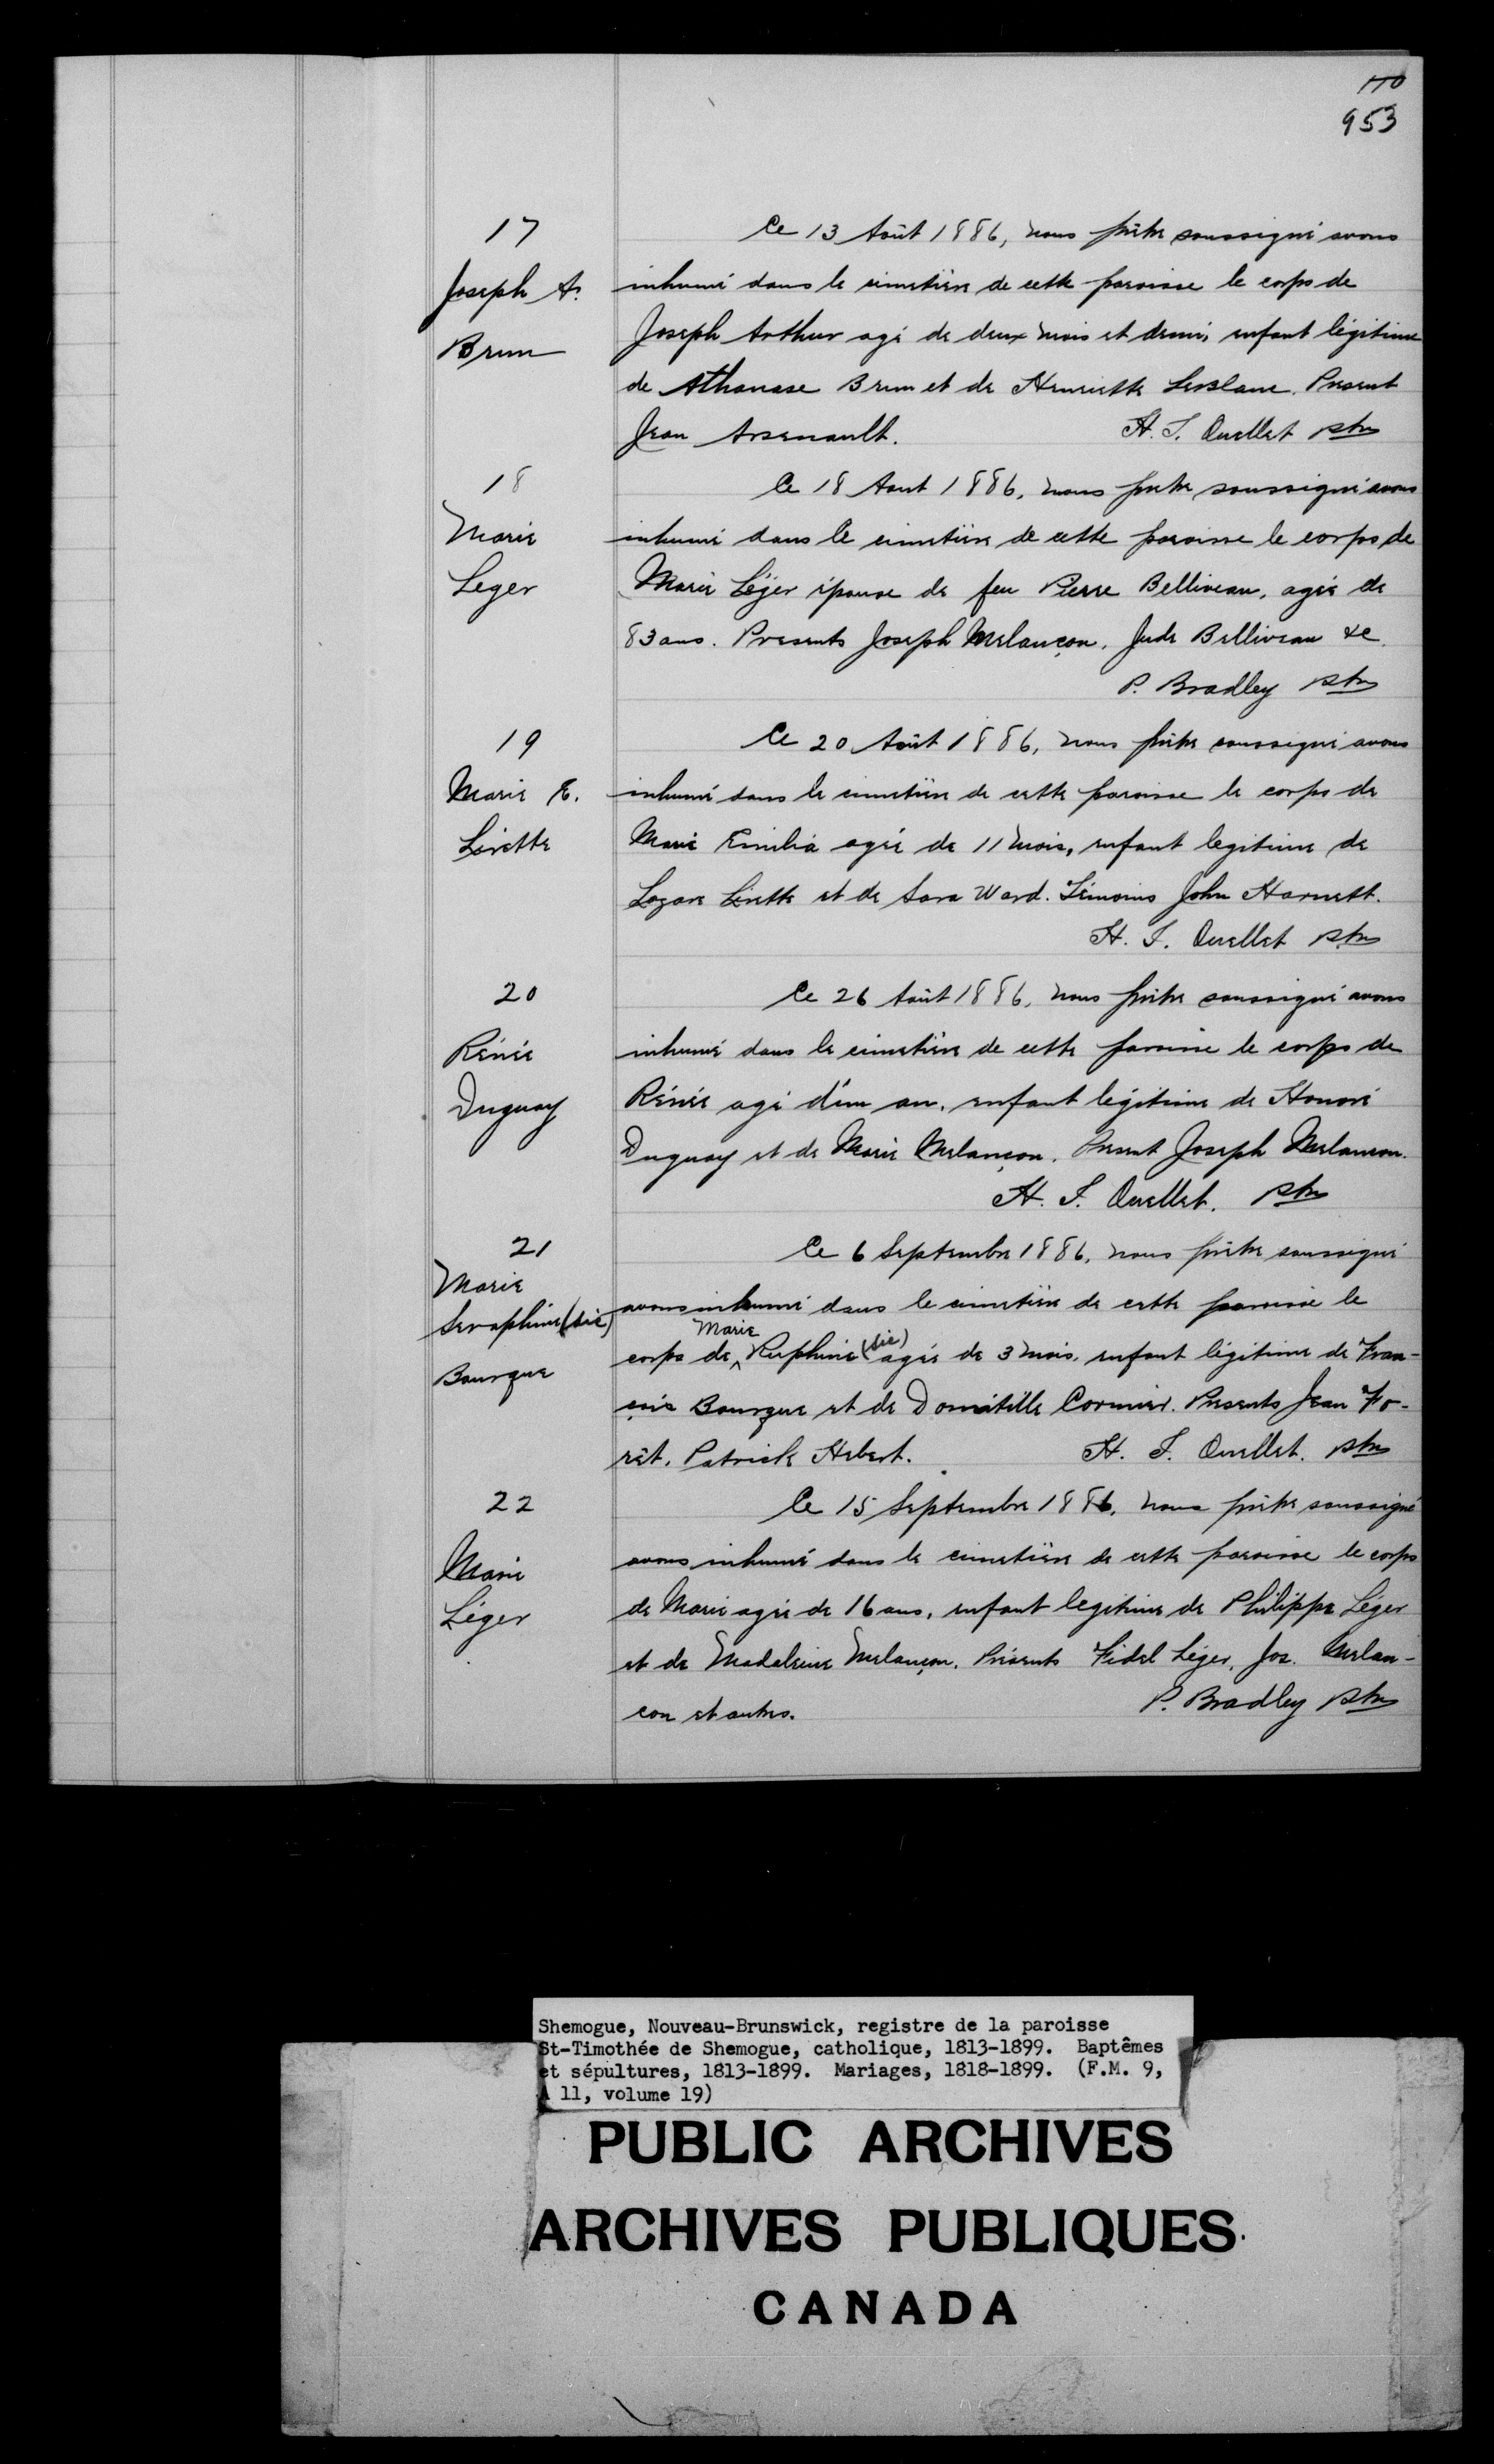 110
953
17
Joseph A.
Brun
Ce 13 Août 1886, nous prêtre soussigné avons
inhumé dans le cimetière de cette paroisse le corps de
Joseph Arthur agé de deux mois et demi, enfant légitime
de Athanase Brun et de Henriette LeBlanc. Present
Jean Arsenault. H. T. Ouellet ptre
18
Marie
Leger
Ce 18 Aout 1886, nous pretre soussigné avons
inhumé dans le cimetière de cette paroisse le corps de
Marie Léger épouse de feu Pierre Belliveau, agée de
83 ans. Presents Joseph Melançon, Jude Belliveau &c.
P. Bradley ptre
19
Marie E.
Lirette
Ce 20 Août 1886, nous prêtre soussigné avons
inhumé dans le cimetière de cette paroisse le corps de
Marie Emilia agée de 11 mois, enfant legitime de
Lazare Lirette et de Sara Ward. Témoins John Harnett.
H. T. Ouellet ptre
20
Rénée
Duguay
Ce 26 Août 1886, nous prêtre soussigné avons
inhumé dans le cimetière de cette paroisse le corps de
Rénée agé d'un an, enfant légitime de Honoré
Duguay et de Marie Melançon. Present Joseph Melancon.
H. T. Ouellet. ptre
21
Marie
Seraphine (sic)
Bourque
Ce 6 Septembre 1886, nous prêtre soussigné
avons inhumé dans le cimetière de cette paroisse le
corps de Marie Ruphine (sic) agée de 3 mois, enfant légitime de Fran-
çois Bourque et de Domitille Cormier. Presents Jean Fo-
rêt, Patrick Hebert. H. T. Ouellet. ptre
22
Marie
Léger
Ce 15 Septembre 1886, nous prêtre soussigné
avons inhumé dans le cimetière de cette paroisse le corps
de Marie agée de 16 ans, enfant legitime de Philippe Léger
et de Madeleine Melançon. Présents Fidel Léger, Jos. Melan-
con et autres. P. Bradley ptre
Shemogue, Nouveau-Brunswick, registre de la paroisse
St-Timothée de Shemogue, catholique, 1813-1899. Baptêmes
et sépultures, 1813-1899. Mariages, 1818-1899. (F.M. 9,
A 11, volume 19)
PUBLIC ARCHIVES
ARCHIVES PUBLIQUES
CANADA